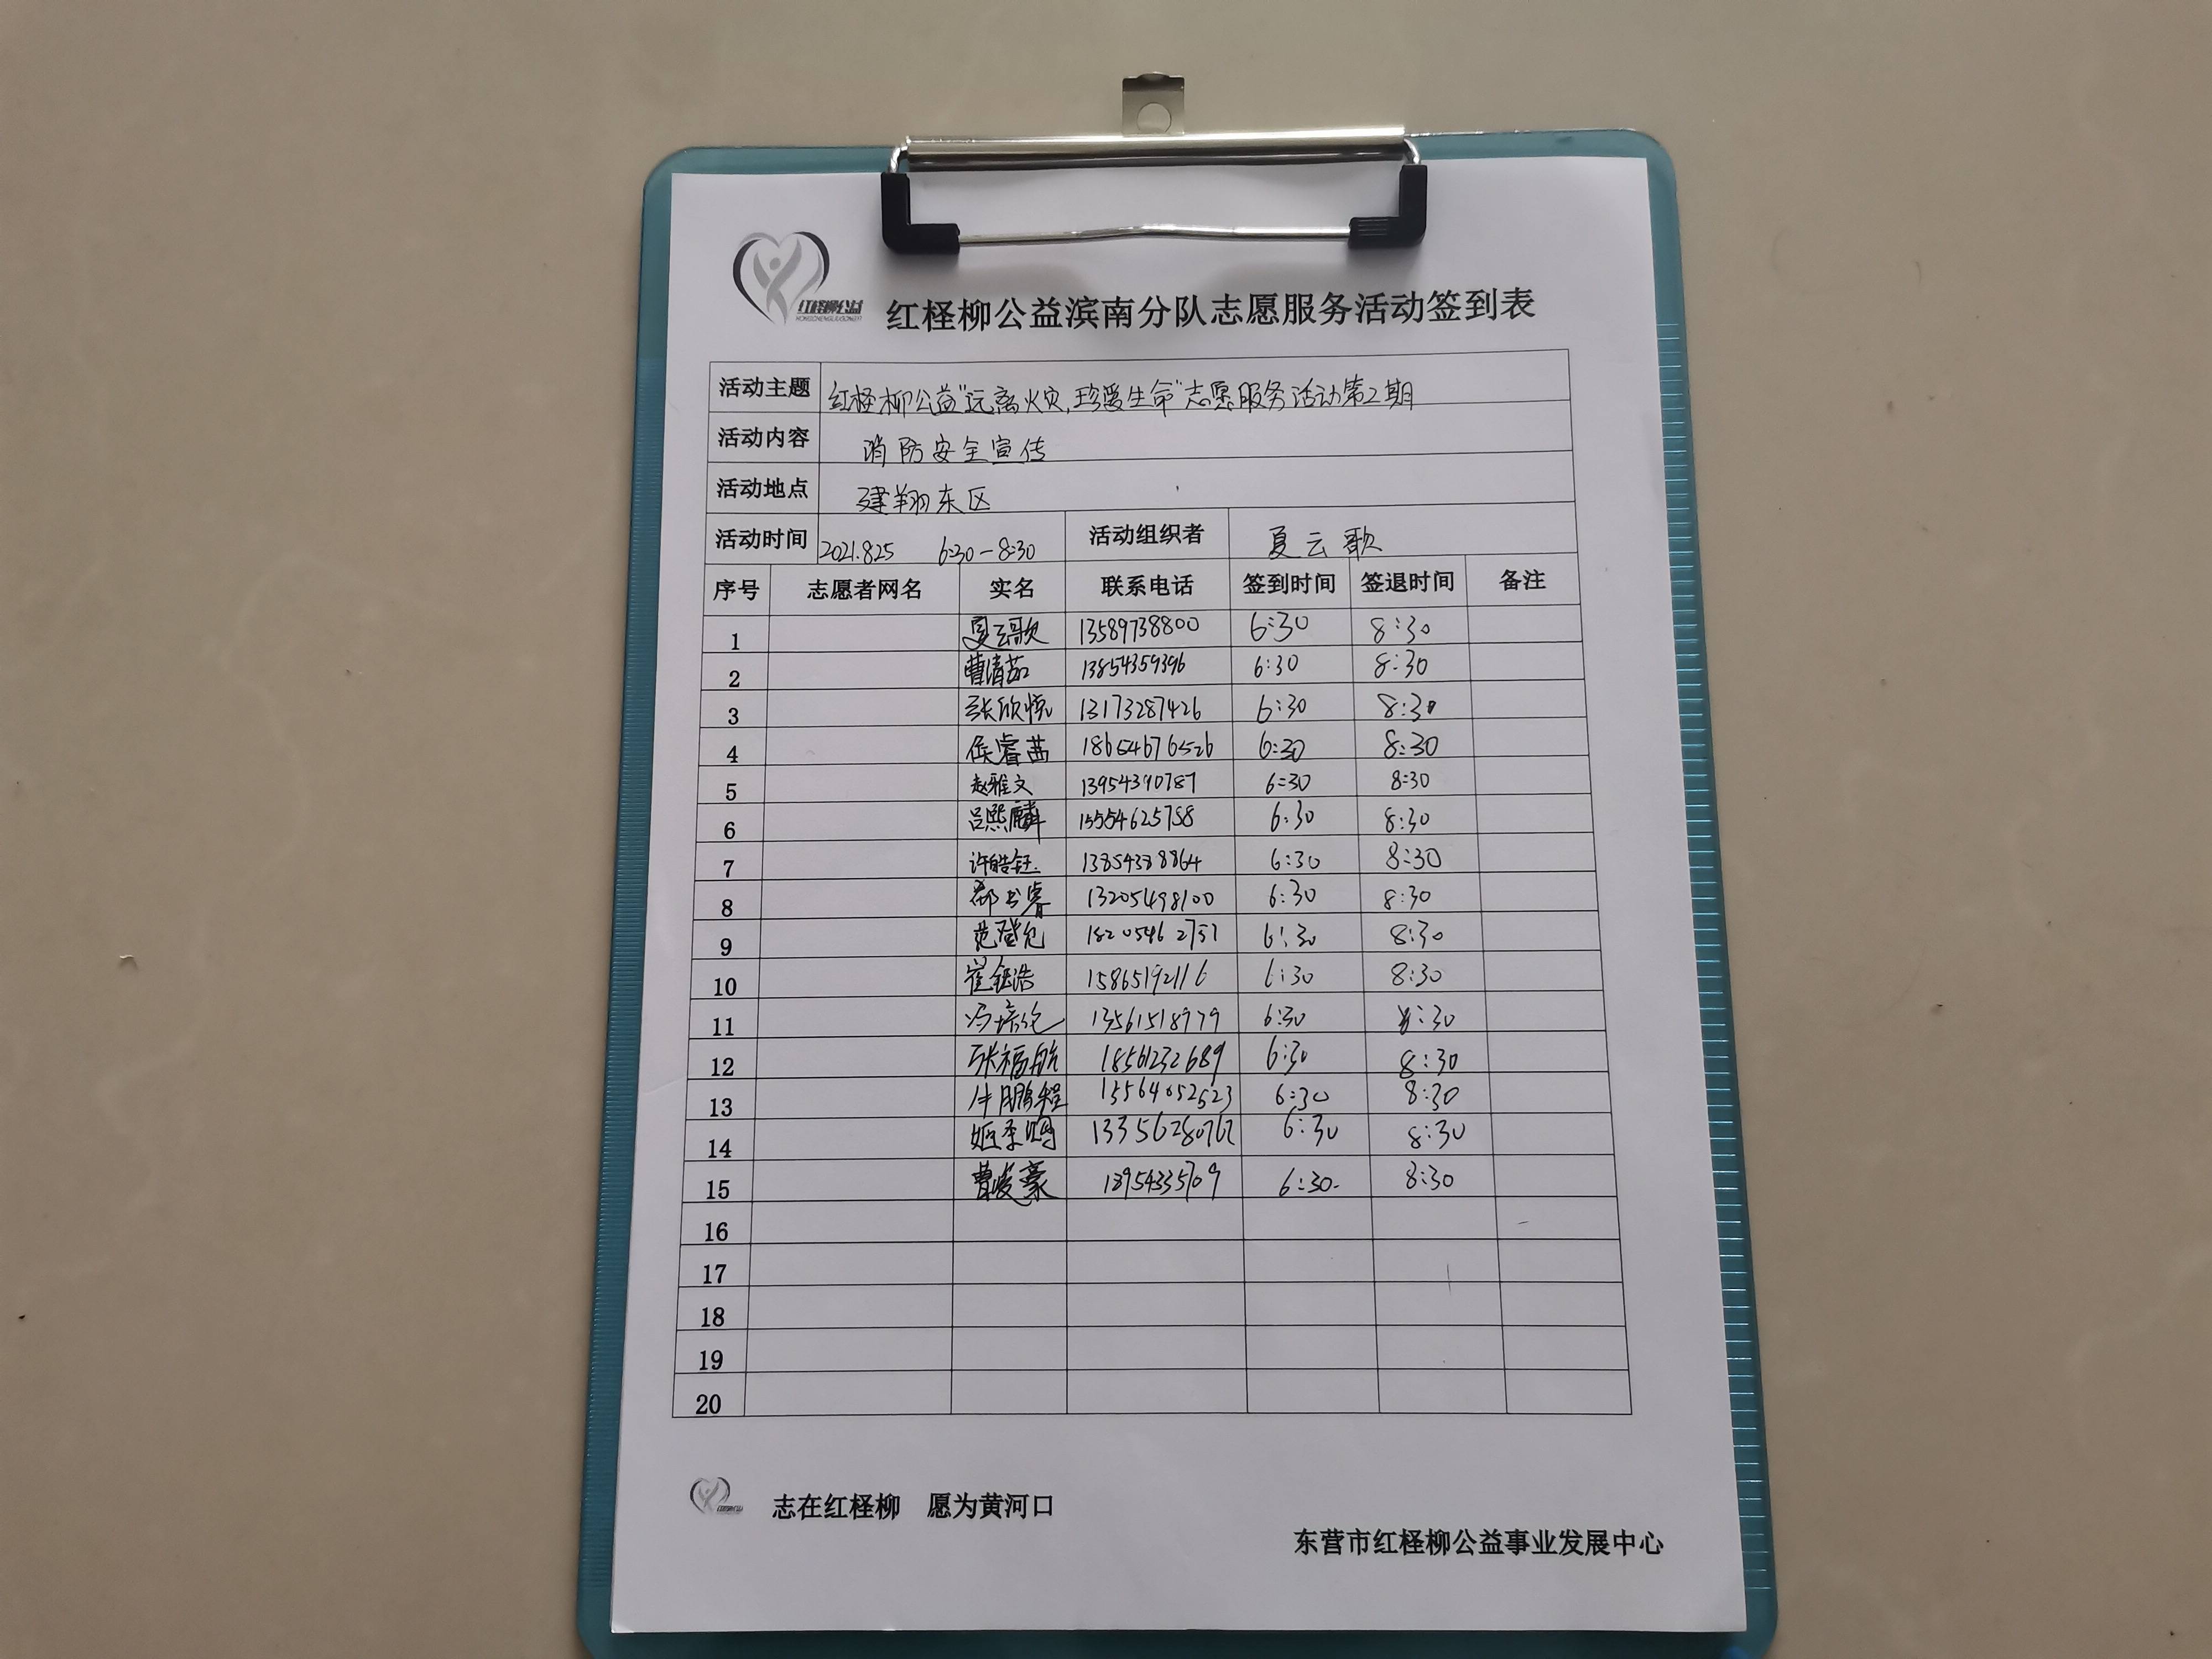 红柽柳公益
HONGCHENGLIUGONGYI
红柽柳公益滨南分队志愿服务活动签到表
活动主题 红柽柳公益"远离火灾,珍爱生命"志愿服务活动第2期
活动内容 消防安全宣传
活动地点 建翔东区
活动时间 2021.8.25 6:30-8:30 活动组织者 夏云歌
序号 志愿者网名 实名 联系电话 签到时间 签退时间 备注
1 夏云歌 13589738800 6:30 8:30
2 曹清茹 13854359396 6:30 8:30
3 张欣悦 13173287426 6:30 8:30
4 侯睿茜 18654676526 6:30 8:30
5 赵雅文 13954390787 6:30 8:30
6 吕熙麟 15554625788 6:30 8:30
7 许皓钰 13854388864 6:30 8:30
8 郝书睿 13205498100 6:30 8:30
9 范登允 18205462751 6:30 8:30
10 崔钰浩 15865192116 6:30 8:30
11 冯培伦 13561518979 6:30 8:30
12 张福航 18561232689 6:30 8:30
13 牛鹏程 15564052523 6:30 8:30
14 13356280767 6:30 8:30
15 曹峻豪 18954335709 6:30 8:30
16
17
18
19
20
志在红柽柳 愿为黄河口
东营市红柽柳公益事业发展中心